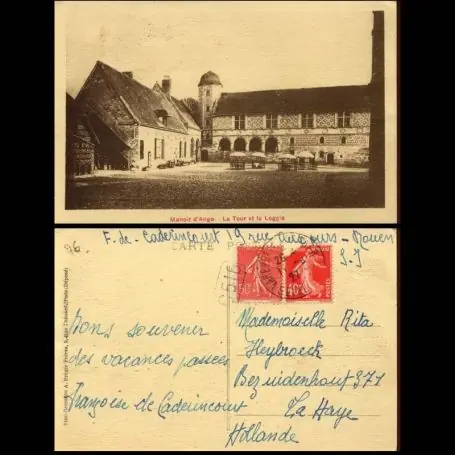 Manoir d'Ango - La Tour et la Loggia
96
F. de Caderincourt 19 rue aux ours - Rouen
S-I
CARTE PO
G516
50c
40c
Mademoiselle Rita
Heybroeck
Bezuidenhout 371
La Haye
Hollande
Bons souvenir
des vacances passées
Françoise de Caderincourt